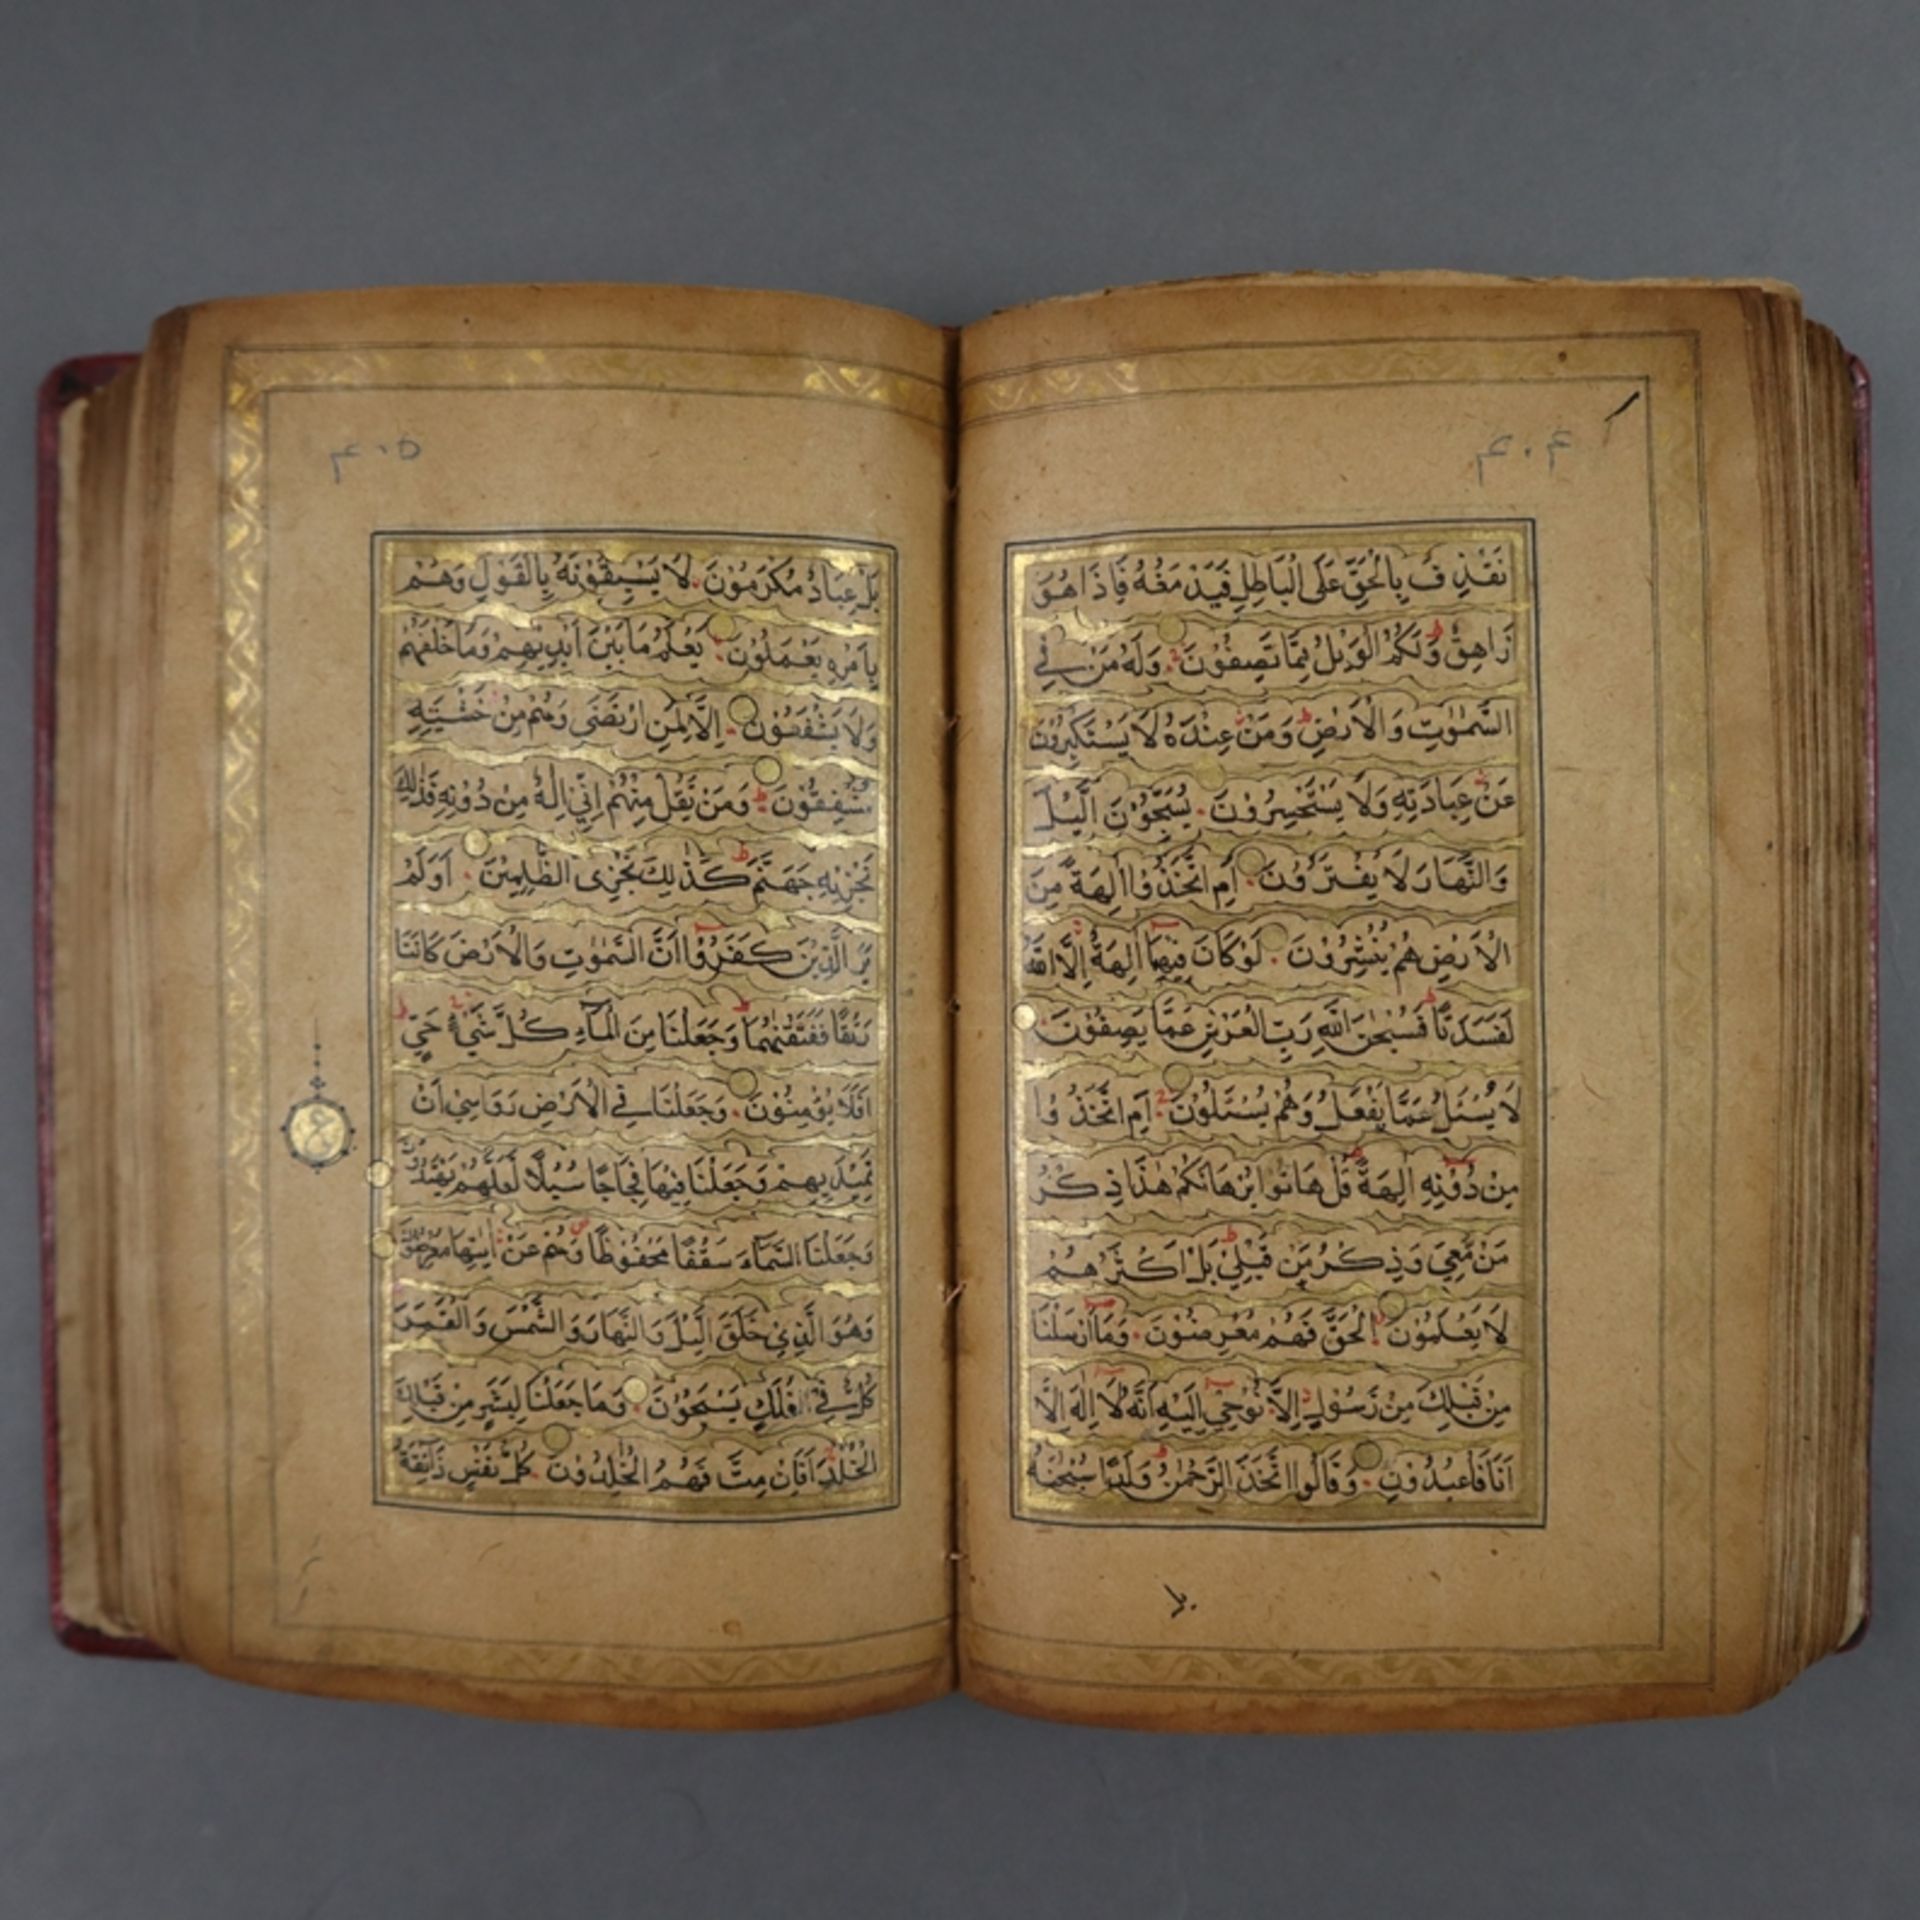 ۴۰۴
نَقْذِفُ بِالْحَقِّ عَلَى الْبَاطِلِ فَيَدْمَغُهُ فَاِذَا هُوَ
زَاهِقٌ وَلَكُمُ الْوَيْلُ مِمَّا تَصِفُوْنَ وَلَهُ مَنْ فِي
السَّمٰوٰتِ وَالْاَرْضِ وَمَنْ عِنْدَهُ لَا يَسْتَكْبِرُوْنَ
عَنْ عِبَادَتِهِ وَلَا يَسْتَحْسِرُوْنَ يُسَبِّحُوْنَ الَّيْلَ
وَالنَّهَارَ لَا يَفْتُرُوْنَ اَمِ اتَّخَذُوْا اٰلِهَةً مِنَ
الْاَرْضِ هُمْ يُنْشِرُوْنَ لَوْ كَانَ فِيْهِمَا اٰلِهَةٌ اِلَّا اللّٰهُ
لَفَسَدَتَا فَسُبْحٰنَ اللّٰهِ رَبِّ الْعَرْشِ عَمَّا يَصِفُوْنَ
لَا يُسْئَلُ عَمَّا يَفْعَلُ وَهُمْ يُسْئَلُوْنَ اَمِ اتَّخَذُوْا
مِنْ دُوْنِهِ اٰلِهَةً قُلْ هَاتُوْا بُرْهَانَكُمْ هٰذَا ذِكْرُ
مَنْ مَّعِيَ وَذِكْرُ مَنْ قَبْلِيْ بَلْ اَكْثَرُهُمْ
لَا يَعْلَمُوْنَ الْحَقَّ فَهُمْ مُعْرِضُوْنَ وَمَا اَرْسَلْنَا
مِنْ قَبْلِكَ مِنْ رَسُوْلٍ اِلَّا نُوْحِيْ اِلَيْهِ اَنَّهُ لَا اِلٰهَ اِلَّا
اَنَا فَاعْبُدُوْنِ وَقَالُوا اتَّخَذَ الرَّحْمٰنُ وَلَدًا سُبْحٰنَهُ
بل
۴۰۵
بَلْ عِبَادٌ مُكْرَمُوْنَ لَا يَسْبِقُوْنَهُ بِالْقَوْلِ وَهُمْ
بِاَمْرِهِ يَعْمَلُوْنَ يَعْلَمُ مَا بَيْنَ اَيْدِيْهِمْ وَمَا خَلْفَهُمْ
وَلَا يَشْفَعُوْنَ اِلَّا لِمَنِ ارْتَضٰى وَهُمْ مِنْ خَشْيَتِهِ
مُشْفِقُوْنَ وَمَنْ يَقُلْ مِنْهُمْ اِنِّيْ اِلٰهٌ مِنْ دُوْنِهِ فَذٰلِكَ
نَجْزِيْهِ جَهَنَّمَ كَذٰلِكَ نَجْزِى الظّٰلِمِيْنَ اَوَلَمْ
يَرَ الَّذِيْنَ كَفَرُوْا اَنَّ السَّمٰوٰتِ وَالْاَرْضَ كَانَتَا
رَتْقًا فَفَتَقْنٰهُمَا وَجَعَلْنَا مِنَ الْمَآءِ كُلَّ شَيْءٍ حَيٍّ
اَفَلَا يُؤْمِنُوْنَ وَجَعَلْنَا فِي الْاَرْضِ رَوَاسِيَ اَنْ
تَمِيْدَ بِهِمْ وَجَعَلْنَا فِيْهَا فِجَاجًا سُبُلًا لَعَلَّهُمْ يَهْتَدُوْنَ
وَجَعَلْنَا السَّمَآءَ سَقْفًا مَحْفُوْظًا وَهُمْ عَنْ اٰيٰتِهَا مُعْرِضُوْنَ
وَهُوَ الَّذِيْ خَلَقَ الَّيْلَ وَالنَّهَارَ وَالشَّمْسَ وَالْقَمَرَ
كُلٌّ فِيْ فَلَكٍ يَسْبَحُوْنَ وَمَا جَعَلْنَا لِبَشَرٍ مِنْ قَبْلِكَ
الْخُلْدَ اَفَائِنْ مِتَّ فَهُمُ الْخٰلِدُوْنَ كُلُّ نَفْسٍ ذَآئِقَةُ